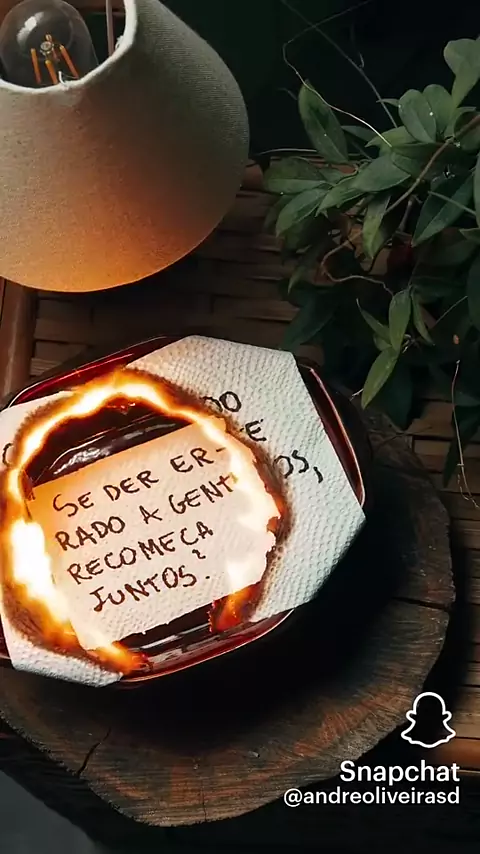 DO
E
OS,
SE DER ER-
RADO A GENT
RECOMEÇA
JUNTOS?
Snapchat
@andreoliveirasd